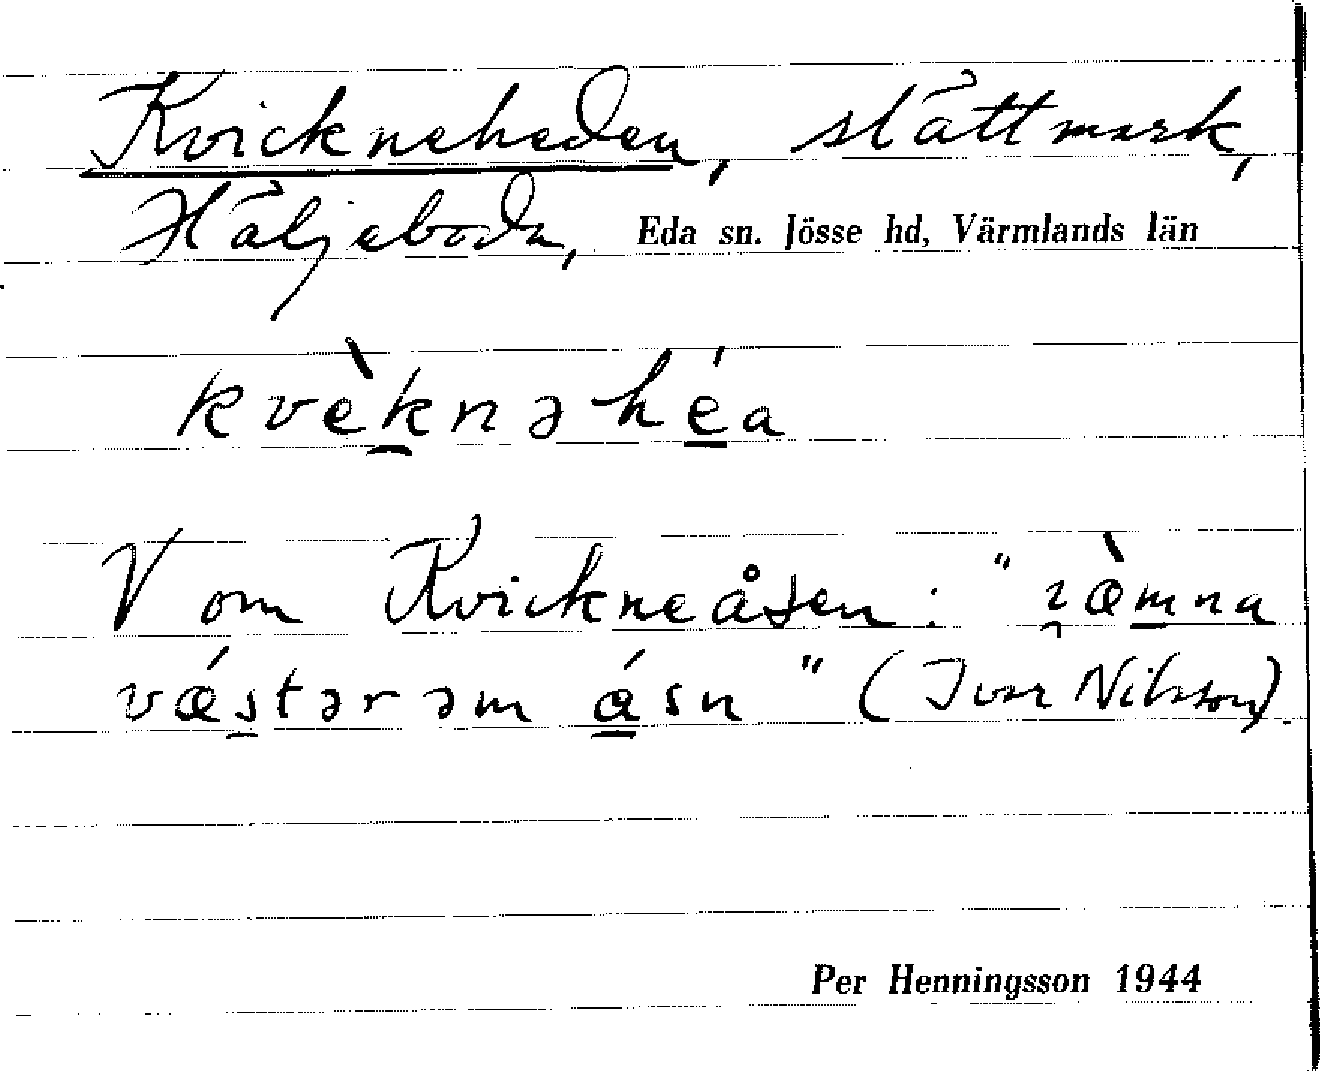 Kvickneheden, slättmark,
Häljeboda, Eda sn. Jösse hd, Värmlands län
kvèknəhéa
V om Kvickneåsen: "ræ̀mna
vǽstərəm ásn" (Ivar Nilsson).
Per Henningsson 1944